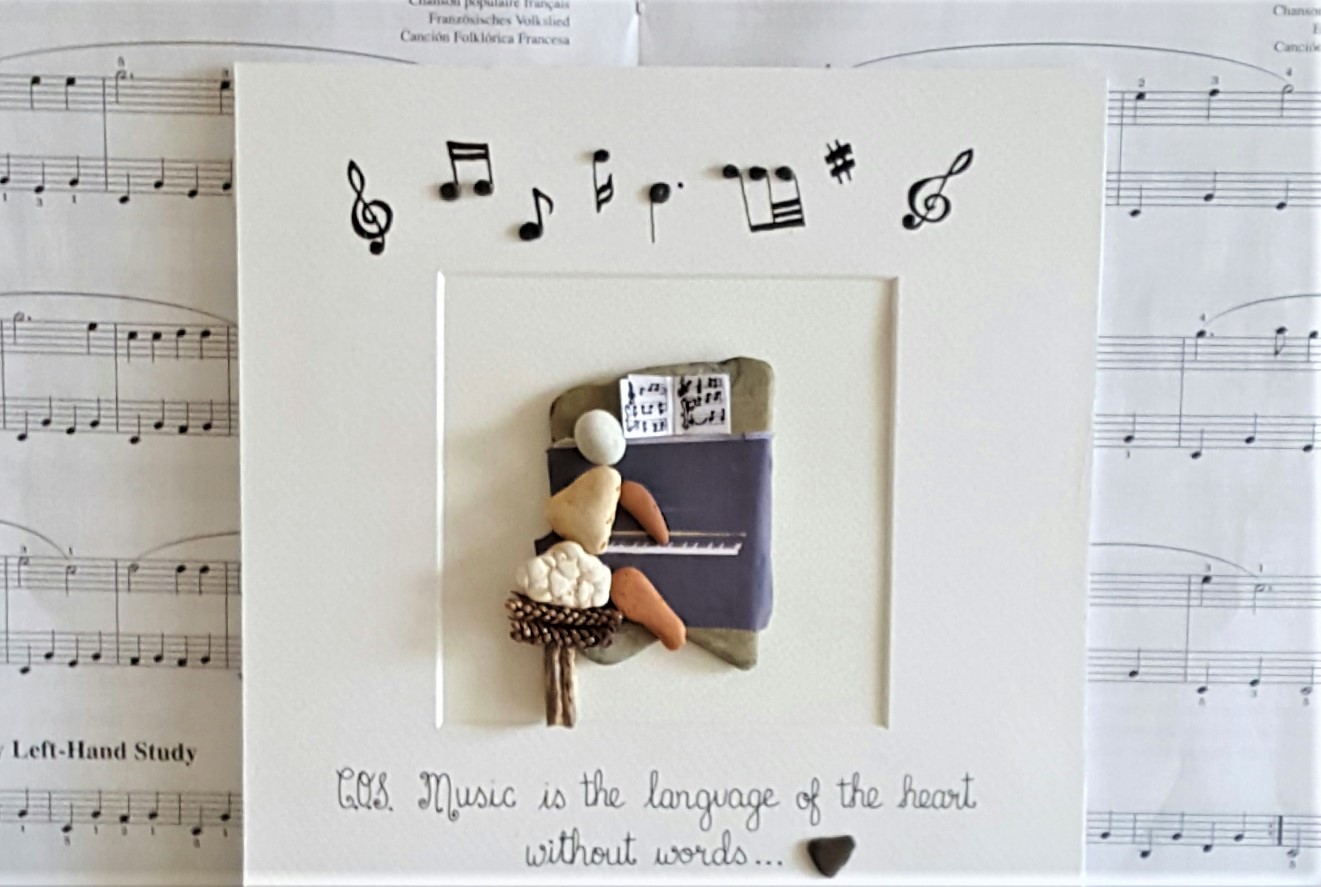 Chanson populaire français
Französisches Volkslied
Canción Folklórica Francesa
Left-Hand Study
Music is the language of the heart
without words...